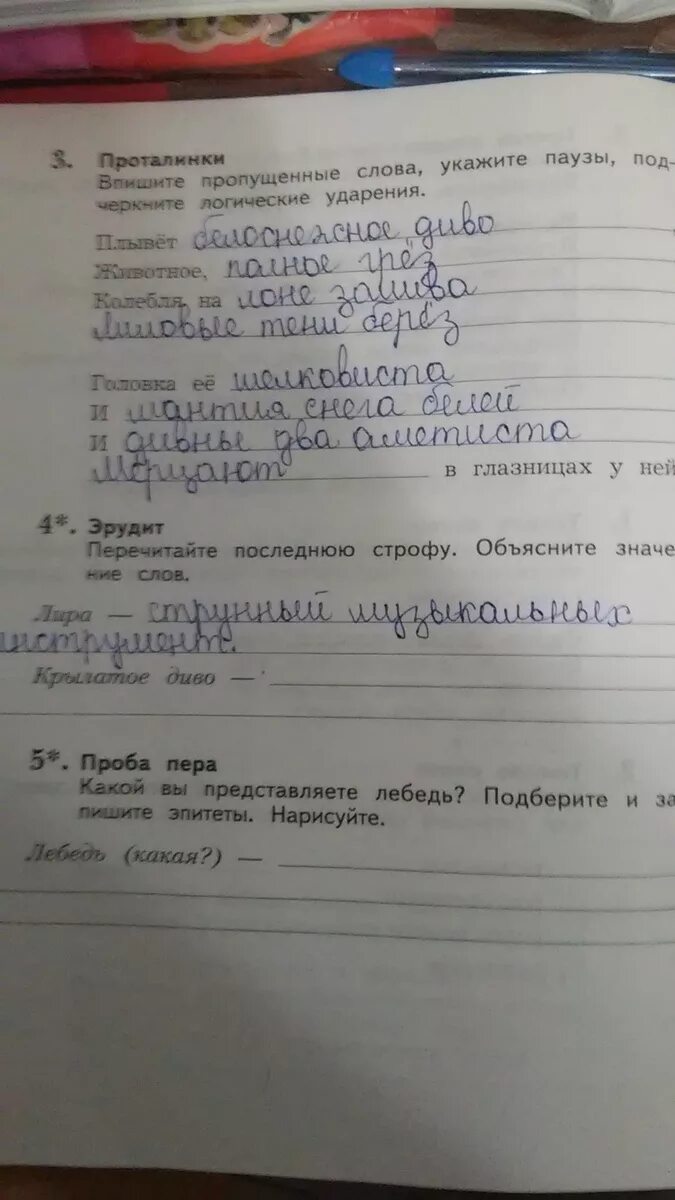 3. Проталинки
Впишите пропущенные слова, укажите паузы, под-
черкните логические ударения.
Плывёт белоснежное диво
Животное, полное грёз
Колебля, на лоне залива
Лиловые тени берёз
Головка её шелковиста
И мантия снега белей
И дивные два аметиста
Мерцают в глазницах у ней
4*. Эрудит
Перечитайте последнюю строфу. Объясните значе
ние слов.
Лира — струнный музыкальных
инструмент.
Крылатое диво —
5*. Проба пера
Какой вы представляете лебедь? Подберите и за
пишите эпитеты. Нарисуйте.
Лебедь (какая?) —